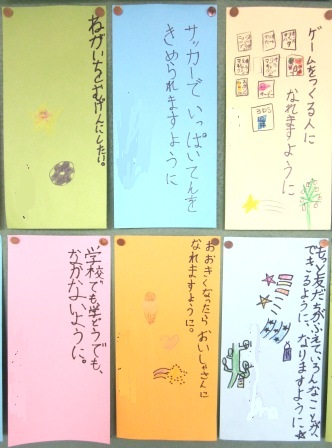 ゲームをつくる人に
なれますように
3DS
サッカーでいっぱいてんを
きめられますように
ねがいごとむげんにしたい。
もっと友だちがふえていろんなことが
できるように、なりますように☆
おおきくなったらおいしゃさんに
なれますように。
学校でも学どうでも、
かかないように。